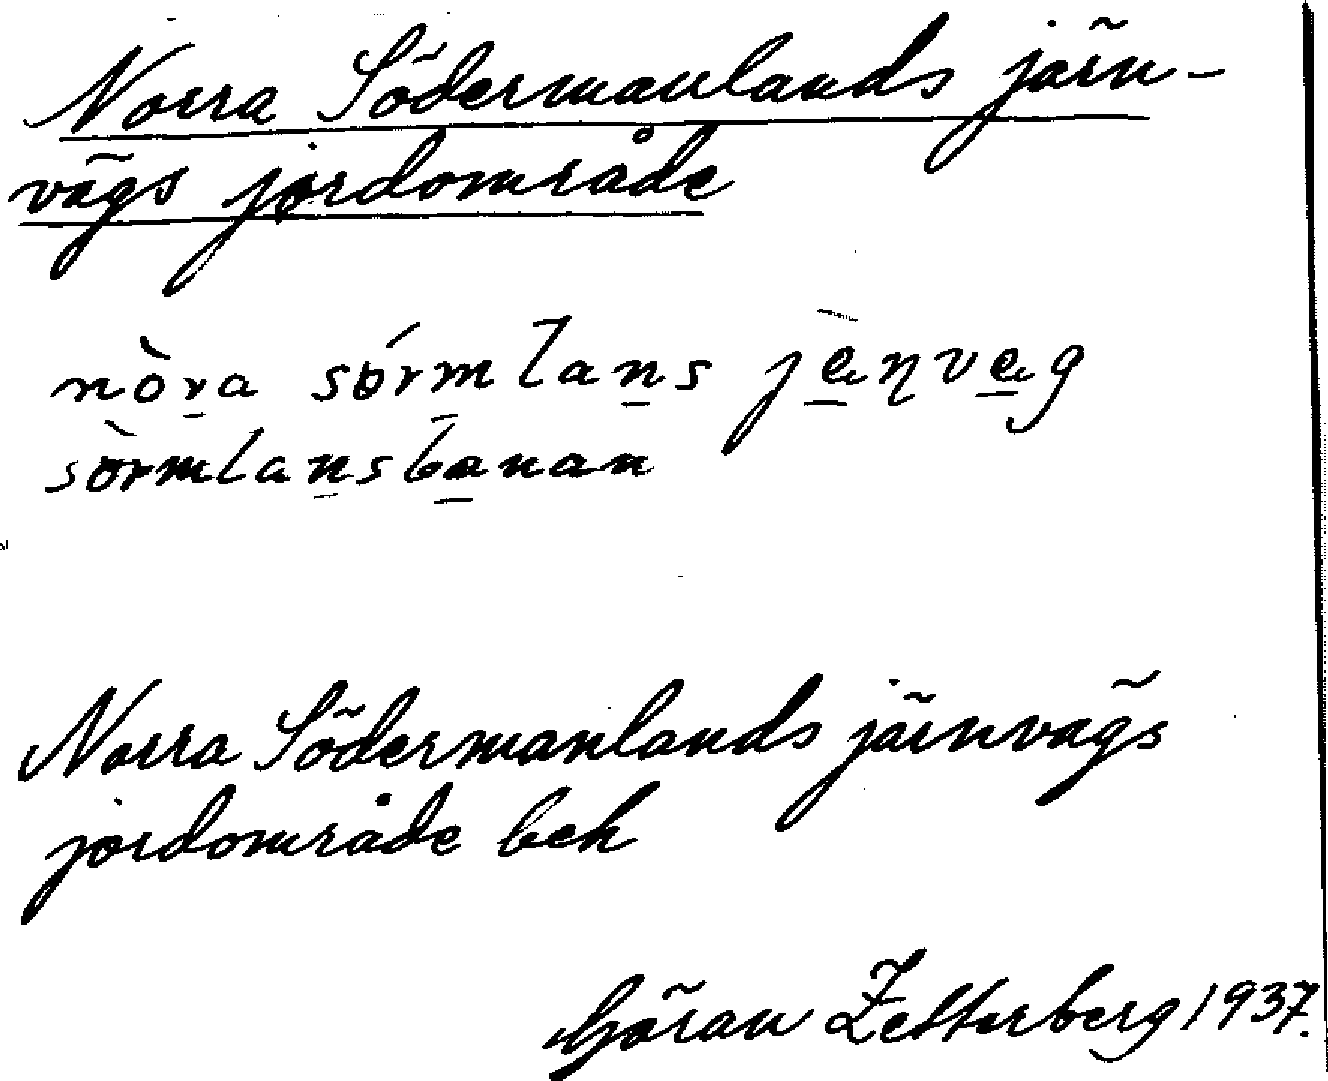 Norra Södermanlands järn-
vägs jordområde
nòra sórmlans jæ̀ɳvæg
sòrmlansbanan
Norra Södermanlands järnvägs
jordområde beh
Göran Zetterberg 1937.